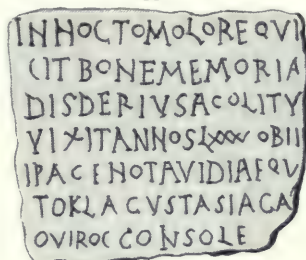 INHOCTOMOLOREQVI
CITBONEMEMORIA
DISDERIVSACOLITV
VIXITANNOSLXXXVOBII
IPACENOTAVIDIAEQV
TOKLACVSTASIACA
OVIROCCONSOLE